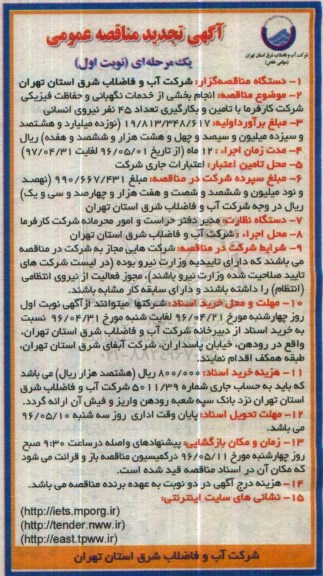 آگهی تجدید مناقصه عمومی
یک مرحله ای (نوبت اول)
شرکت آب و فاضلاب شرق استان تهران
(سهامی خاص)
۱- دستگاه مناقصه‌گزار: شرکت آب و فاضلاب شرق استان تهران
۲- موضوع مناقصه: انجام بخشی از خدمات نگهبانی و حفاظت فیزیکی
شرکت کارفرما با تامین و بکارگیری تعداد ۴۵ نفر نیروی انسانی
۳- مبلغ برآورداولیه: ۱۹/۸۱۳/۳۴۸/۶۱۷ (نوزده میلیارد و هشتصد
و سیزده میلیون و سیصد و چهل و هشت هزار و ششصد و هفده) ریال
۴- مدت زمان اجرا : ۱۲ ماه (از تاریخ ۹۶/۰۵/۰۱ لغایت ۹۷/۰۴/۳۱)
۵- محل تامین اعتبار: اعتبارات جاری شرکت
۶- مبلغ سپرده شرکت در مناقصه: مبلغ ۹۹۰/۶۶۷/۴۳۱ (نهصد
و نود میلیون و ششصد و شصت و هفت هزار و چهارصد و سی و یک)
ریال در وجه شرکت آب و فاضلاب شرق استان تهران
۷- دستگاه نظارت: مدیر دفتر حراست و امور محرمانه شرکت کارفرما
۸- محل اجرا : شرکت آب و فاضلاب شرق استان تهران
۹- شرایط شرکت در مناقصه: شرکت هایی مجاز به شرکت در مناقصه
می باشند که دارای تاییدیه وزارت نیرو بوده (در لیست شرکت های
تایید صلاحیت شده وزارت نیرو باشند)، مجوز فعالیت از نیروی انتظامی
(انتظام) را داشته باشند و دارای سابقه کار مشابه باشند.
۱۰- مهلت و محل خرید اسناد: شرکتها میتوانند ازآگهی نوبت اول
روز چهارشنبه مورخ ۹۶/۰۴/۲۱ لغایت شنبه مورخ ۹۶/۰۴/۳۱ نسبت
به خرید اسناد از دبیرخانه شرکت آب و فاضلاب شرق استان تهران،
واقع در رودهن، خیابان پاسداران، شرکت آبفای شرق استان تهران،
طبقه همکف اقدام نمایند.
۱۱- هزینه خرید اسناد: ۸۰۰/۰۰۰ ریال (هشتصد هزار ریال) می باشد
که باید به حساب جاری شماره ۵۰۱۱/۳۹ شرکت آب و فاضلاب شرق
استان تهران نزد بانک سپه شعبه رودهن واریز و فیش آن ارائه گردد.
۱۲- مهلت تحویل اسناد: پایان وقت اداری روز سه شنبه ۹۶/۰۵/۱۰ می
باشد.
۱۳- زمان و مکان بازگشایی: پیشنهادهای واصله درساعت ۹:۳۰ صبح
روز چهارشنبه مورخ ۹۶/۰۵/۱۱ درکمیسیون مناقصه باز و قرائت می شود
که مکان آن در اسناد مناقصه قید شده است.
۱۴- هزینه درج آگهی در دو نوبت به عهده برنده مناقصه می باشد.
۱۵- نشانی های سایت اینترنتی:
(http://iets.mporg.ir)
(http://tender.nww.ir)
(http://east.tpww.ir)
شرکت آب و فاضلاب شرق استان تهران